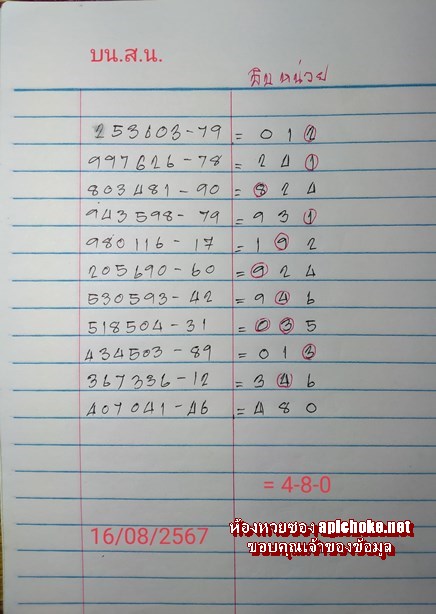 บน.ส.น.
สิบ หน่วย
253603-79 = 0 1 2
997626-78 = 2 4 1
803481-90 = 8 2 4
943598-79 = 9 3 1
980116-17 = 1 9 2
205690-60 = 9 2 4
530593-42 = 9 4 6
518504-31 = 0 3 5
434503-89 = 0 1 3
367336-12 = 3 4 6
407041-46 = 4 8 0
= 4-8-0
16/08/2567
ห้องหวยซอง apichoke.net
ขอบคุณเจ้าของข้อมูล